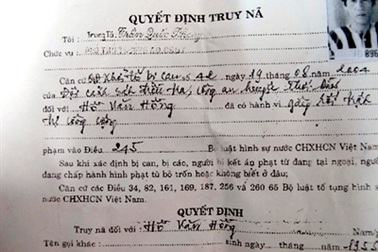 QUYẾT ĐỊNH TRUY NÃ
Trung tá Trần Quốc
Chức vụ :
Căn cứ QĐ Khởi tố bị can số 42 ngày 19 tháng 08 năm 2004
của Đội cảnh sát điều tra, công an huyện
đối với Hồ Văn Hồng đã có hành vi gây rối trật
tự công cộng
phạm vào Điều 245 Bộ luật hình sự nước CHXHCN Việt Nam.
Sau khi xác định bị can, bị cáo, người bị kết án phạt tù đang tại ngoại, người
đang chấp hành hình phạt tù bỏ trốn hoặc không biết ở đâu;
Căn cứ các Điều 34, 82, 161, 169, 187, 256 và 260 65 Bộ luật tố tụng hình sự
nước CHXHCN Việt Nam.
QUYẾT ĐỊNH
Truy nã đối với: Hồ Văn Hồng
Tên gọi khác : sinh ngày tháng năm 1955